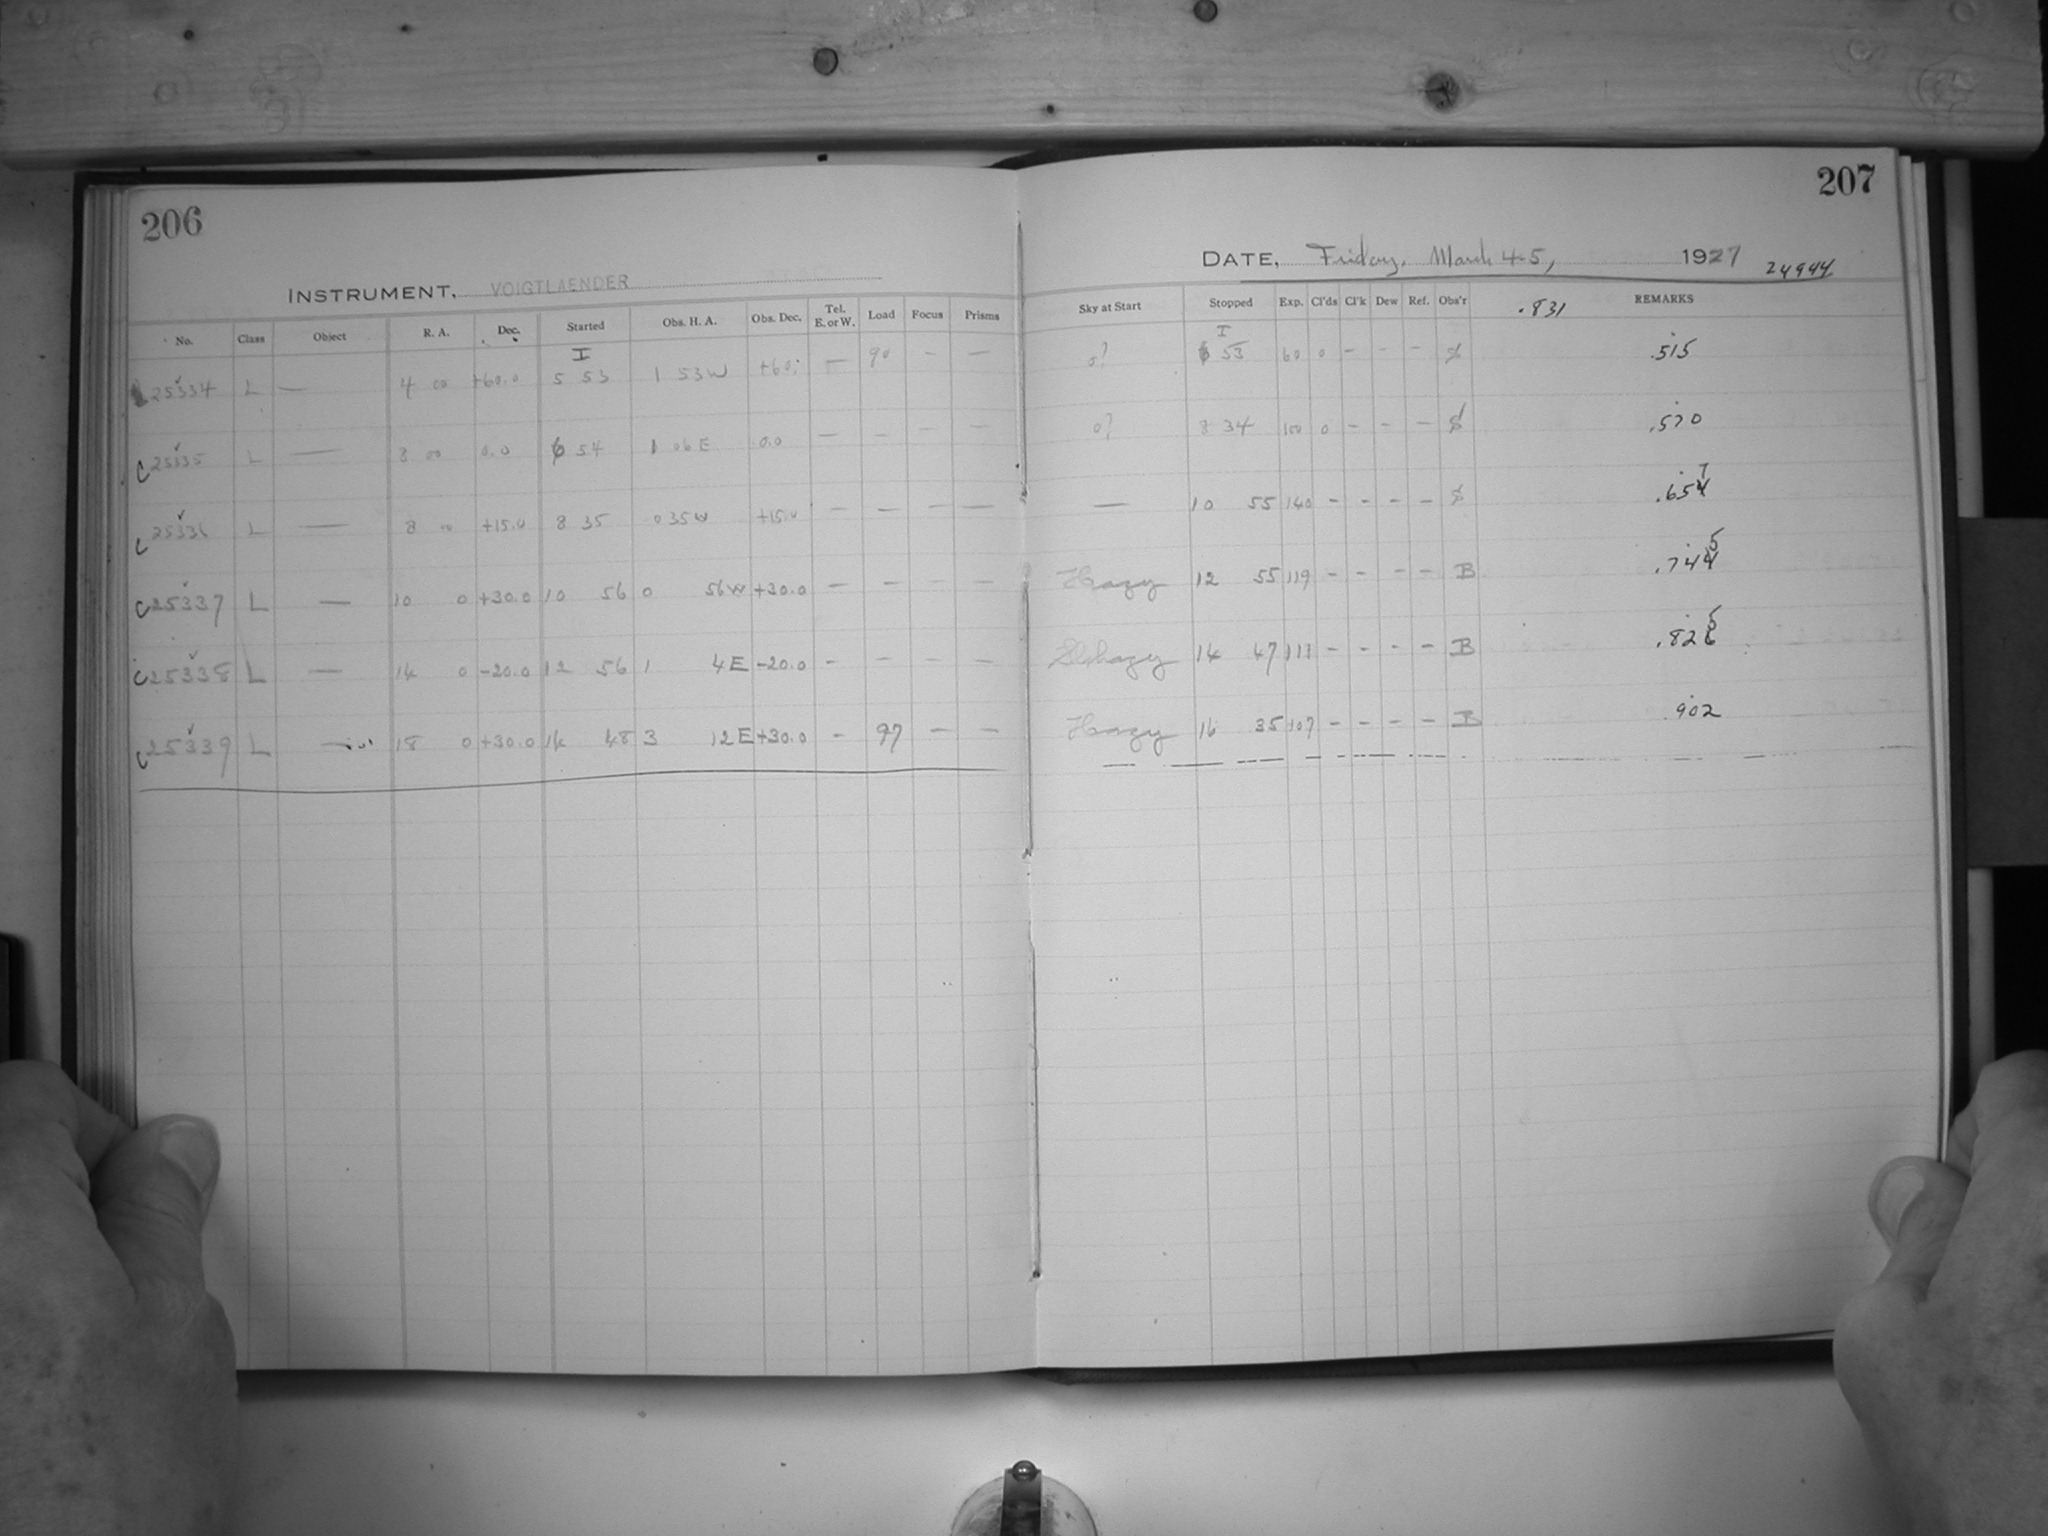 206
INSTRUMENT, VOIGTLAENDER
No. Class Object R. A. Dec. Started Obs. H. A. Obs. Dec. Tel. E. or W. Load Focus Prisms
25334 L — 4 00 +60.0 I 5 53 1 53 W +60. — 90 — —
C 25335 L — 8 00 0.0 6 54 1 06 E 0.0 — — — —
C 25336 L — 8 00 +15.0 8 35 0 35 W +15.0 — — — —
C 25337 L — 10 0 +30.0 10 56 0 56 W +30.0 — — — —
C 25338 L — 14 0 -20.0 12 56 1 4 E -20.0 - — — —
C 25339 L — 18 0 +30.0 14 48 3 12 E +30.0 - 97 — —
207
DATE, Friday, March 4-5, 1927 24944
Sky at Start Stopped Exp. Cl'ds Cl'k Dew Ref. Obs'r .831 REMARKS
0? I 6 53 60 0 - - - .515
0? 8 34 100 0 - - - .570
— 10 55 140 - - - - .654 7
Hazy 12 55 119 - - - - B .744 5
14 47 111 - - - - B .826 5
Hazy 16 35 107 - - - - B .902